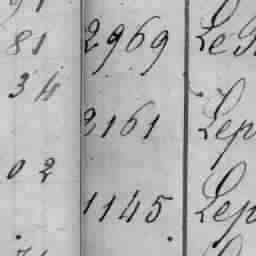 81 2969 Le
34
2161 Lep
02
1145 Lep